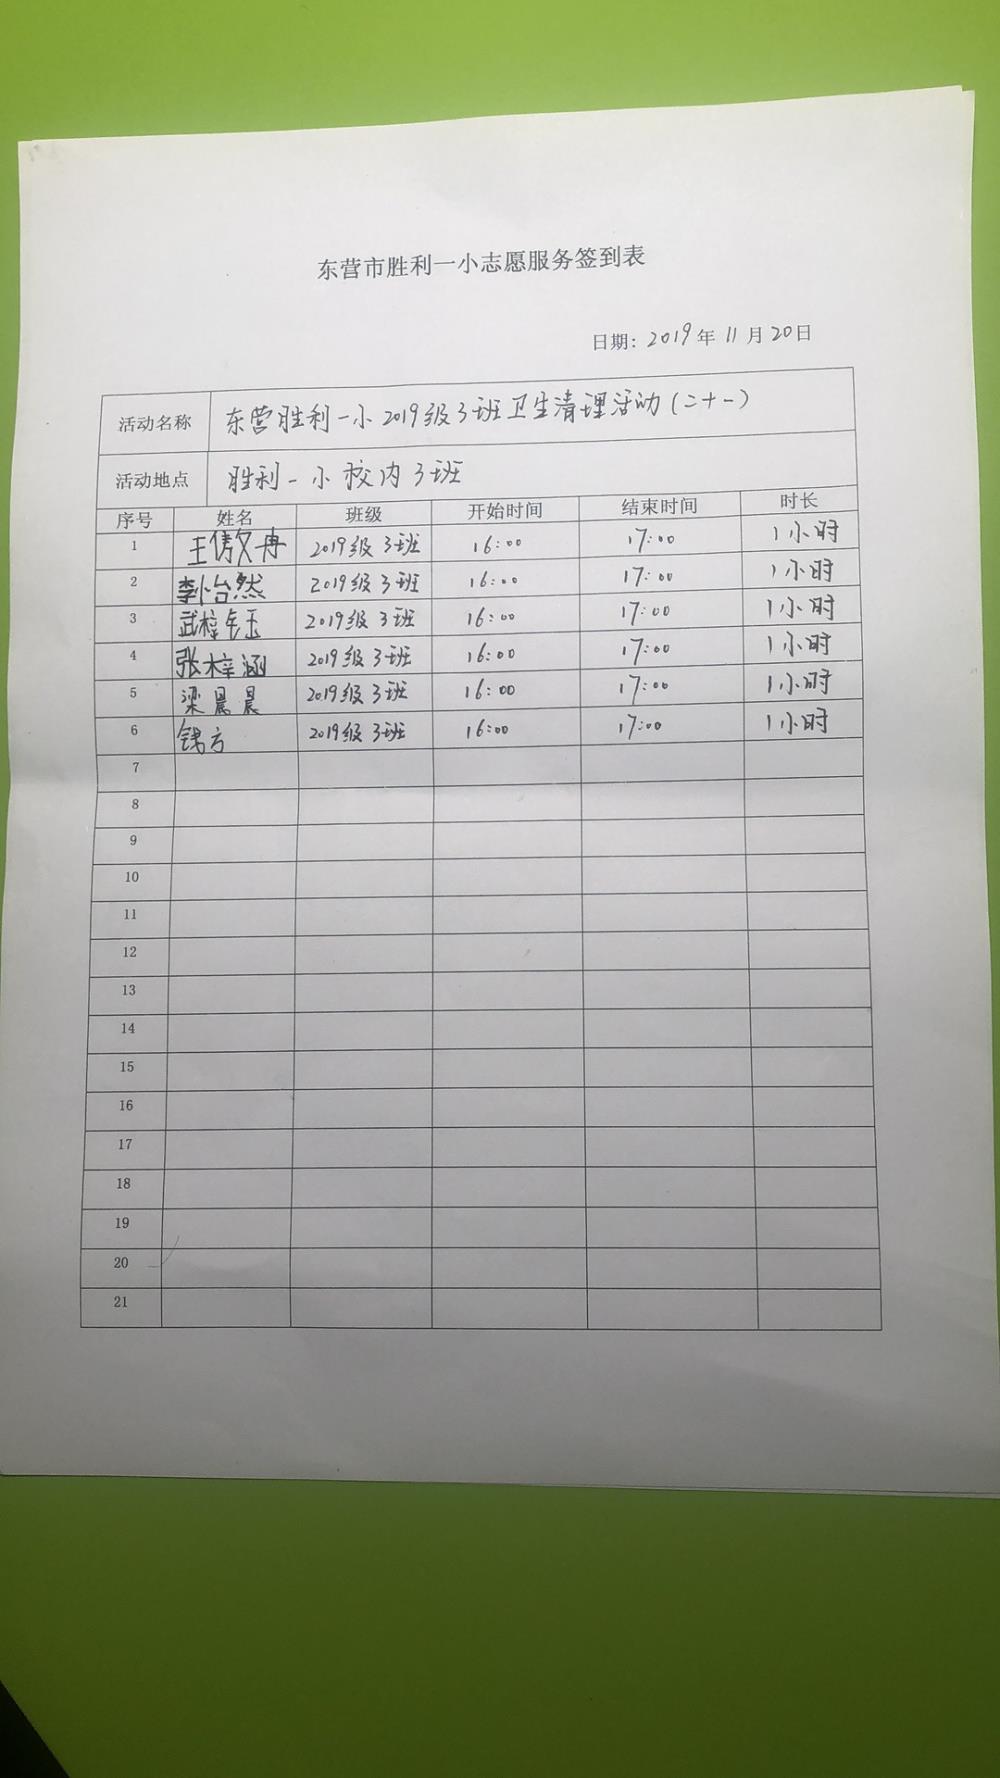 东营市胜利一小志愿服务签到表
日期：2019年11月20日
活动名称 东营胜利一小2019级3班卫生清理活动（二十一）
活动地点 胜利一小校内3班
序号 姓名 班级 开始时间 结束时间 时长
1 王 2019级3班 16:00 17:00 1小时
2 李怡然 2019级3班 16:00 17:00 1小时
3 武梓钰 2019级3班 16:00 17:00 1小时
4 张梓涵 2019级3班 16:00 17:00 1小时
5 梁晨晨 2019级3班 16:00 17:00 1小时
6 钱方 2019级3班 16:00 17:00 1小时
7
8
9
10
11
12
13
14
15
16
17
18
19
20
21